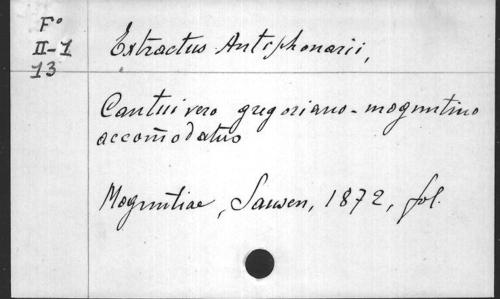 Fº
II-1
13
Extractus Antiphonarii,
Cantui vero gregoriano-moguntino
accom̄odatus
Moguntiae, Sausen, 1872, fol.